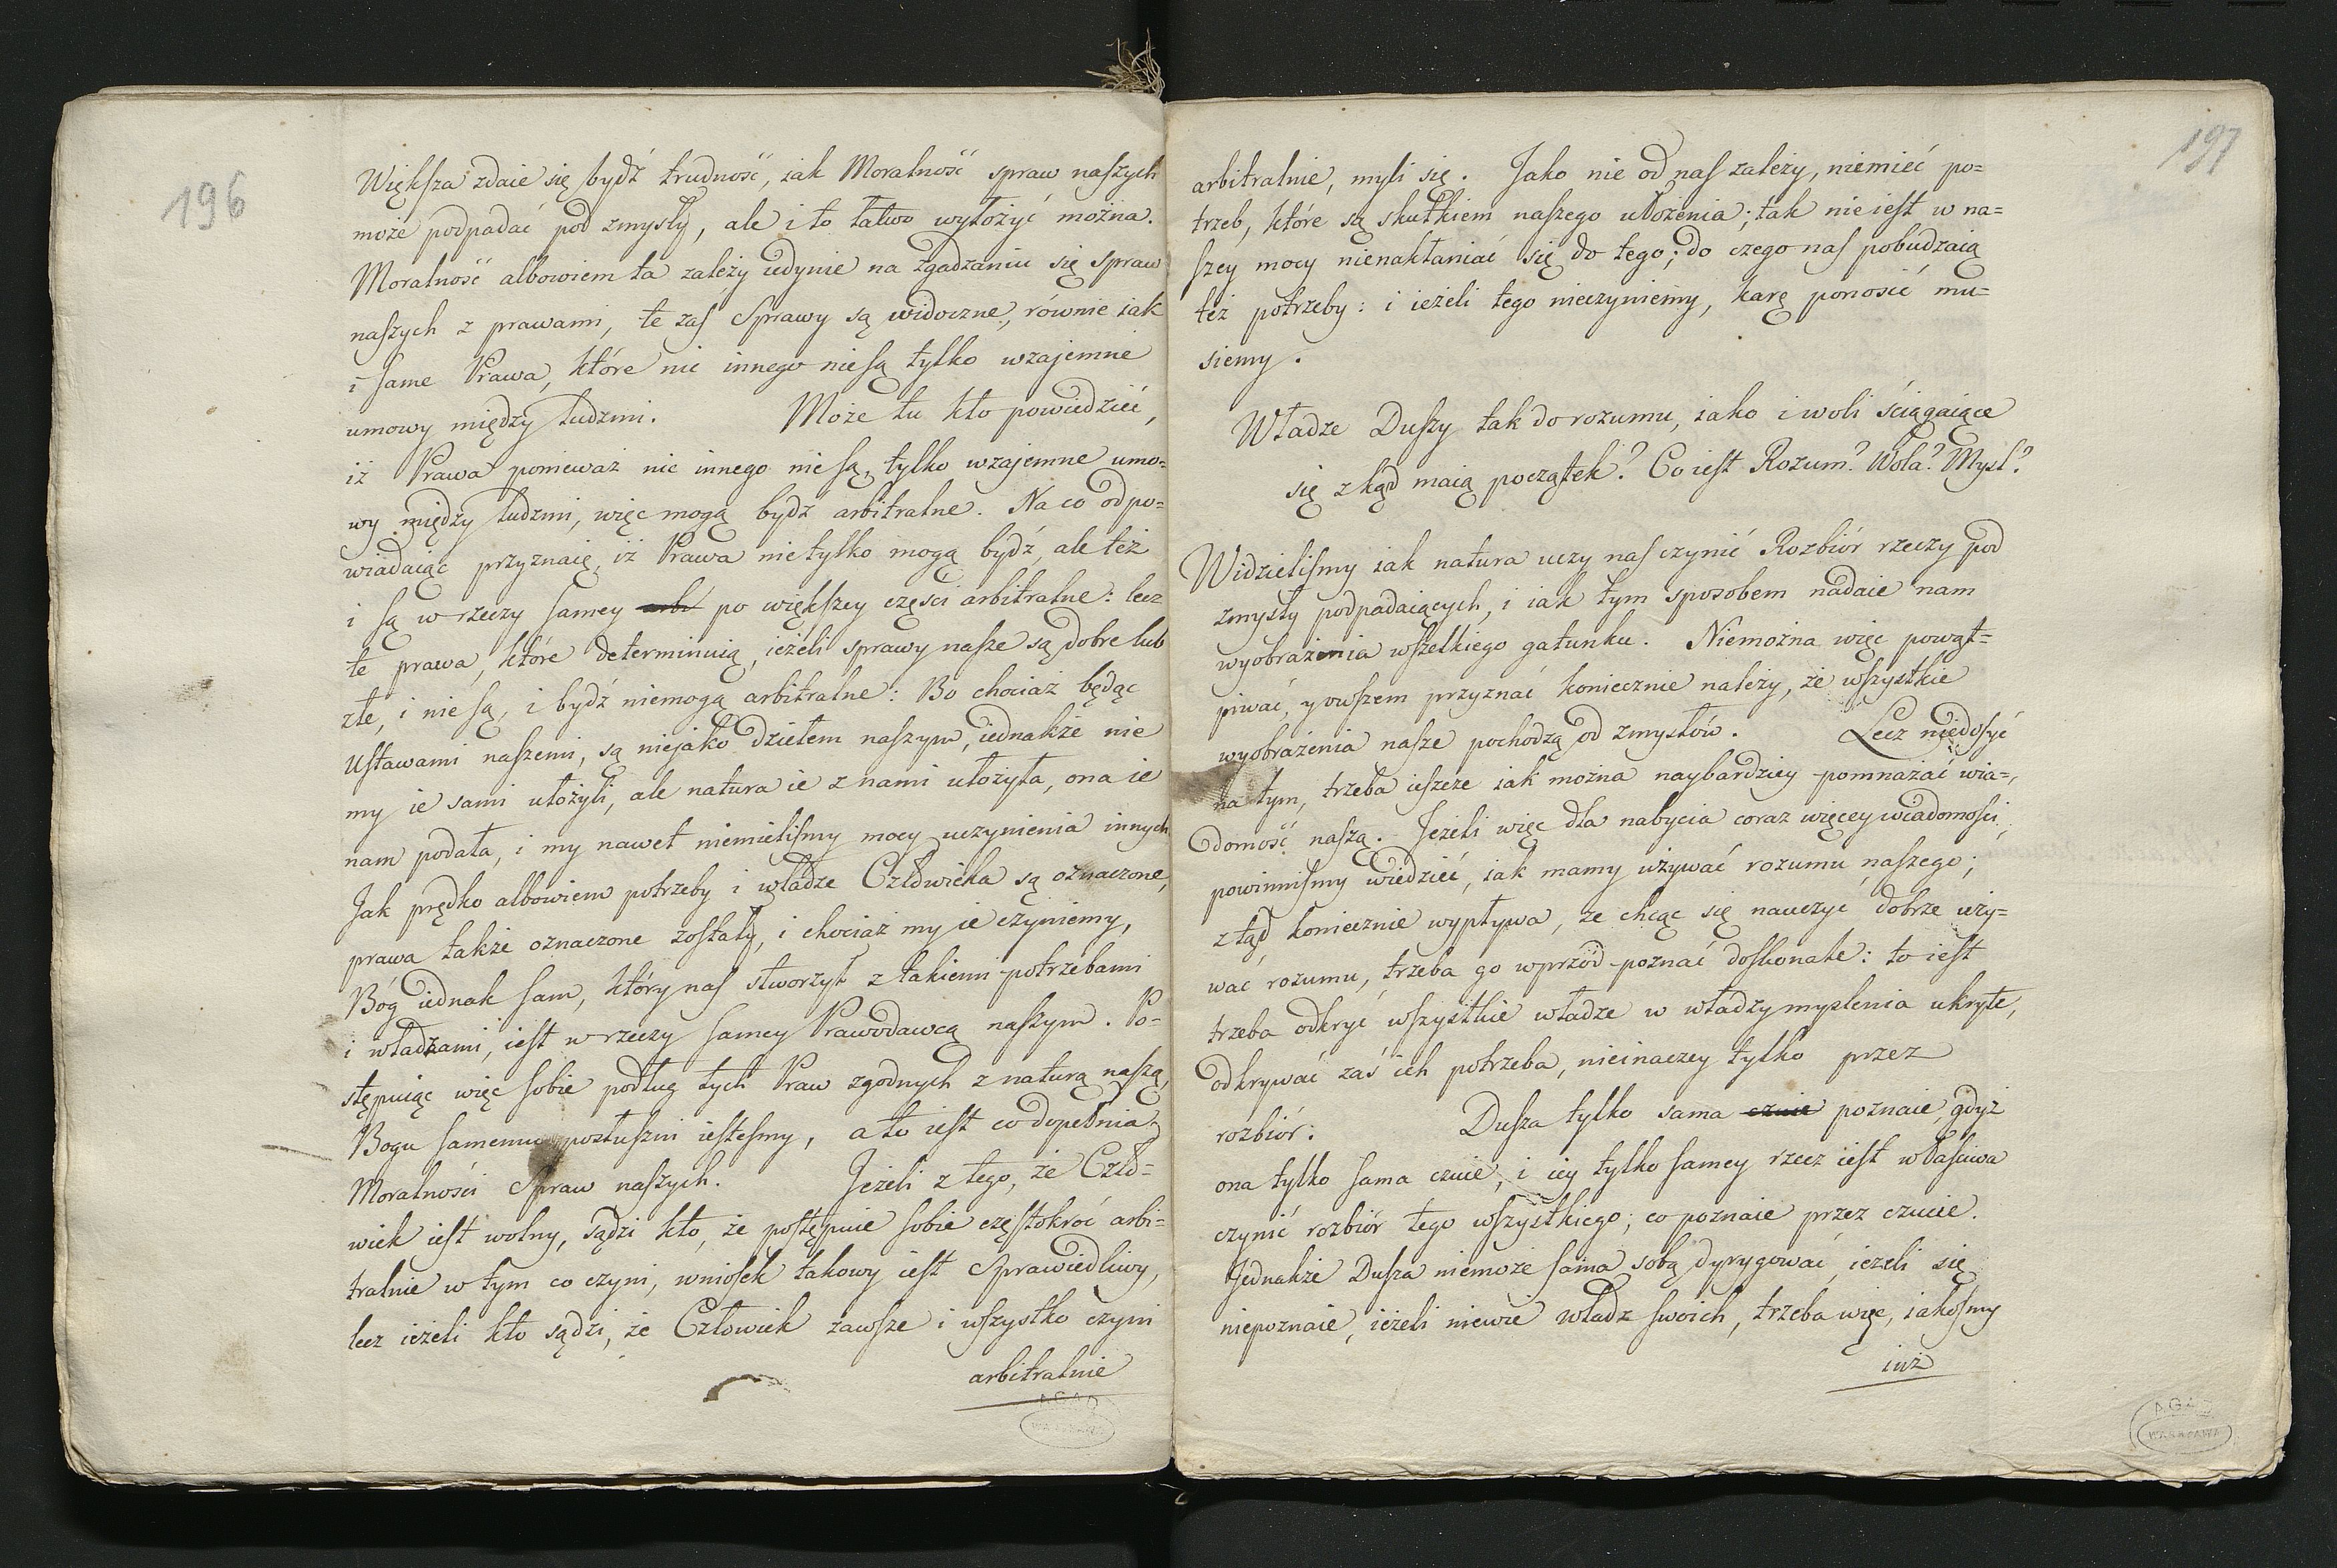 196
Większa zdaie się bydź trudność, iak Moralność spraw naszych
może podpadać pod zmysły, ale i to łatwo wyłożyć można.
Moralność albowiem ta zależy iedynie na zgadzaniu się spraw
naszych z prawami, te zaś Sprawy są widoczne, równie iak
i same Prawa, które nic innego nie są tylko wzajemne
umowy między ludzmi. Może tu kto powiedzieć,
iż Prawa ponieważ nic innego nie są, tylko wzajemne umo=
wy między ludzmi, więc mogą bydz arbitralne. Na co odpo=
wiadaiąc przyznaię, iż Prawa nietylko mogą bydź, ale też
i są w rzeczy samey arbi po większey części arbitralne: lecz
te prawa, które determinuią, ieżeli sprawy nasze są dobre lub
złe, i nie są, i bydź niemogą arbitralne: Bo chociaż będąc
Ustawami naszemi, są niejako dziełem naszym, iednakże nie
my ie sami ułożyli, ale natura ie z nami ułożyła, ona ie
nam podała, i my nawet niemieliśmy mocy uczynienia innych
Jak prędko albowiem potrzeby i władze Człowieka są oznaczone,
prawa także oznaczone zostały, i chociaż my ie czyniemy,
Bóg iednak sam, który nas stworzył z takiemi potrzebami
i władzami, iest w rzeczy samey Prawodawcą naszym. Po=
stępuiąc więc sobie podług tych Praw zgodnych z naturą naszą,
Bogu samemu posłuszni iesteśmy, a to iest co dopełnia
Moralności Spraw naszych. Jeżeli z tego, że Czło=
wiek iest wolny, sądzi kto, że postępuie sobie częstokroć arbi=
tralnie w tym co czyni, wniosek takowy iest Sprawiedliwy,
lecz ieżeli kto sądzi, że Człowiek zawsze i wszystko czyni
arbitralnie
AGAD
WARSZAWA
197
arbitralnie, myli się. Jako nie od nas zależy, niemieć po=
trzeb, które są skutkiem naszego ułożenia; tak nie iest w na=
szey mocy nienakłaniać się do tego; do czego nas pobudzaią
też potrzeby: i ieżeli tego nieczyniemy, karę ponosić mu=
siemy.
Władze Duszy tak do rozumu, iako i woli ściągaiące
się zkąd maią początek? Co iest Rozum? Wola? Mysl?
Widzieliśmy iak natura uczy nas czynić Rozbiór rzeczy pod
zmysły podpadaiących, i iak tym sposobem nadaie nam
wyobrażenia wszelkiego gatunku. Niemożna więc powąt=
piwać, y owszem przyznać koniecznie należy, że wszystkie
wyobrażenia nasze pochodzą od zmysłów. Lecz niedosyć
na tym, trzeba ieszcze iak można naybardziey pomnażać wia=
domość naszą. Jeżeli więc dla nabycia coraz więcey wiadomości,
powinniśmy wiedzieć, iak mamy używać rozumu naszego;
ztąd koniecznie wypływa, że chcąc się nauczyć dobrze uży=
wać rozumu, trzeba go wprzód poznać doskonale: to iest
trzeba odkryć wszystkie władze w władzy myslenia ukryte,
odkrywać zaś ich potrzeba, nieinaczey tylko przez
rozbiór: Dusza tylko sama czuie poznaie, gdyż
ona tylko sama czuie, i iey tylko samey rzecz iest właściwa
czynić rozbiór tego wszystkiego; co poznaie przez czucie.
Jednakże Dusza niemoże sama sobą dyrygować, ieżeli się
niepoznaie, ieżeli niewie władz swoich, trzeba więc, iakosmy
iuż
AGAD
WARSZAWA